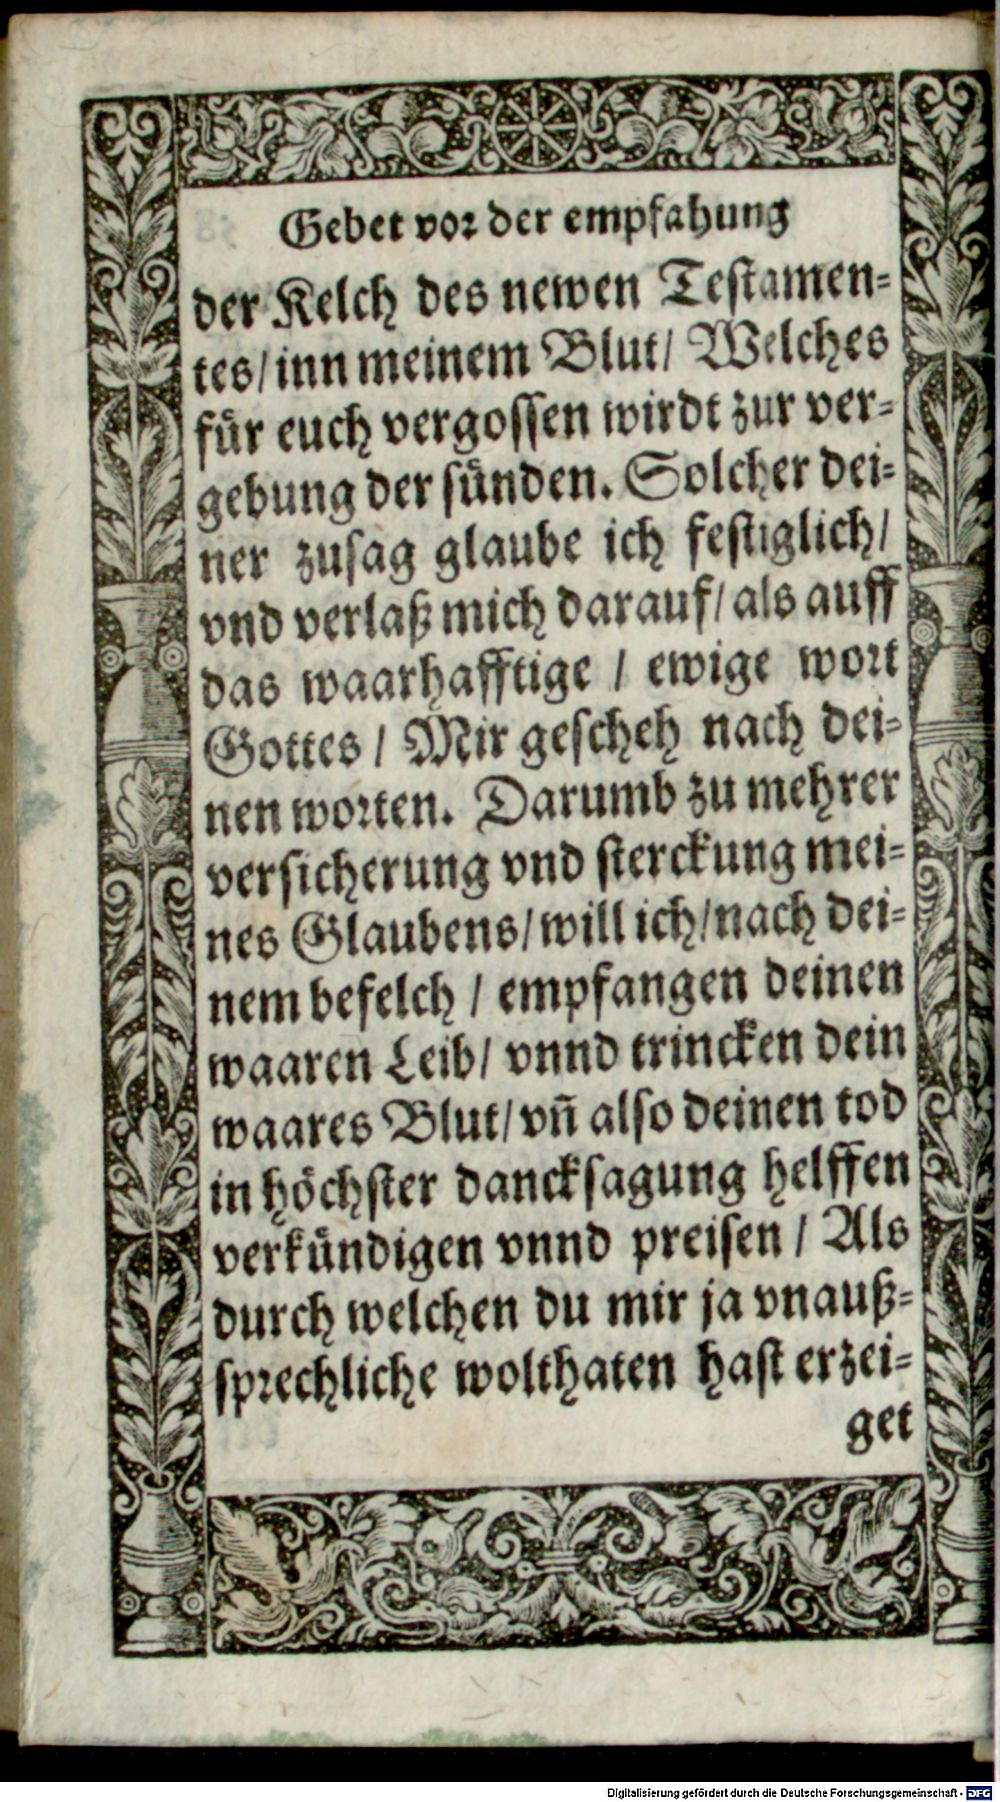 Gebet vor der empfahung
der Kelch des newen Testamen-
tes/ inn meinem Blut/ Welches
für euch vergossen wirdt zur ver-
gebung der sünden. Solcher dei-
ner zusag glaube ich festiglich/
vnd verlaß mich darauf/ als auff
das waarhafftige / ewige wort
Gottes / Mir gescheh nach dei-
nen worten. Darumb zu mehrer
versicherung vnd sterckung mei-
nes Glaubens/ will ich/ nach dei-
nem befelch / empfangen deinen
waaren Leib/ vnnd trincken dein
waares Blut/ vñ also deinen tod
in höchster dancksagung helffen
verkündigen vnnd preisen / Als
durch welchen du mir ja vnauß-
sprechliche wolthaten hast erzei-
get
Digitalisierung gefördert durch die Deutsche Forschungsgemeinschaft - DFG